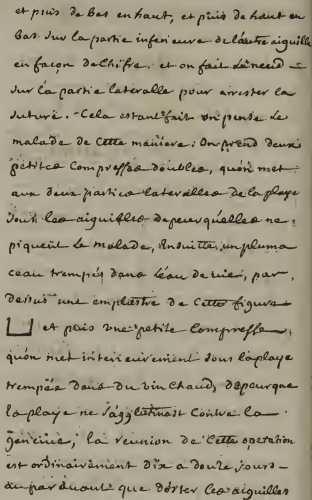 et puis de bas en haut, et puis de haut en
bas sur la partie inferieure de lautre aiguille
en façon de chifre. et on fait le neud
sur la partie lateralle pour arrester la
suture. Cela estant fait on pense Le
malade de Cette maniere: On prend deux
petites Compresses doubles, quon met
aux deux parties lateralles de la playe
sous les aiguilles depeur quelles ne
piquent Le malade, Ensuitte, un pluma
ceau trempés dans Léau de vie, par
dessus une emplastre de Cette figure
et puis une petite Compresse,
quon met interieurement sous laplaye
trempée dans du vin Chaud, depeurque
laplaye ne s'agglutinast Contre la
gencive, la reunion de Cette operation
est ordinairement dix a douze jours
auparavant que doster les aiguilles